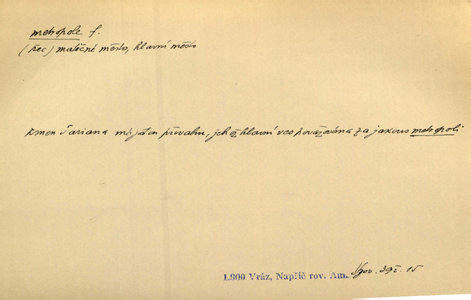 metropole f.
(řec) matečné město, hlavní město
kmen Tariana má jakou převahu, jehož hlavní ves považována za jakous metropoli
L900 Vráz, Napříč rov. Am.
15